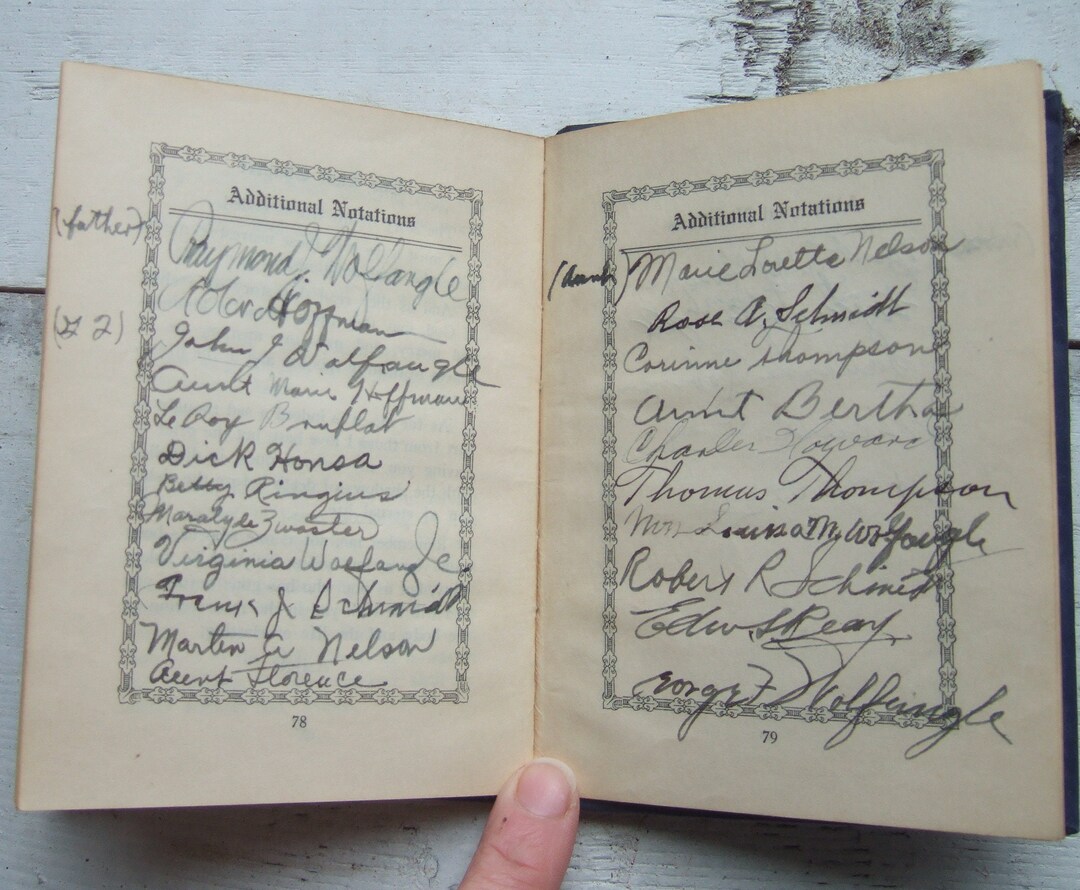 Additional Notations
(father) Raymond J. Wolfangle
Hoffman
John J Wolfangle
Aunt Marie Hoffman
LeRoy
Dick Honsa
Betty Ringius
Zwaster
Virginia Wolfangle
Frank J Schmidt
Martin A Nelson
Aunt Florence
78
Additional Notations
(Aunt) Marie Loretta Nelson
Rose A. Schmidt
Corinne Thompson
Aunt Bertha
Charles Howard
Thomas Thompson
Mrs Louisa M Wolfangle
Robert R Schmidt
Edw.
George F Wolfangle
79